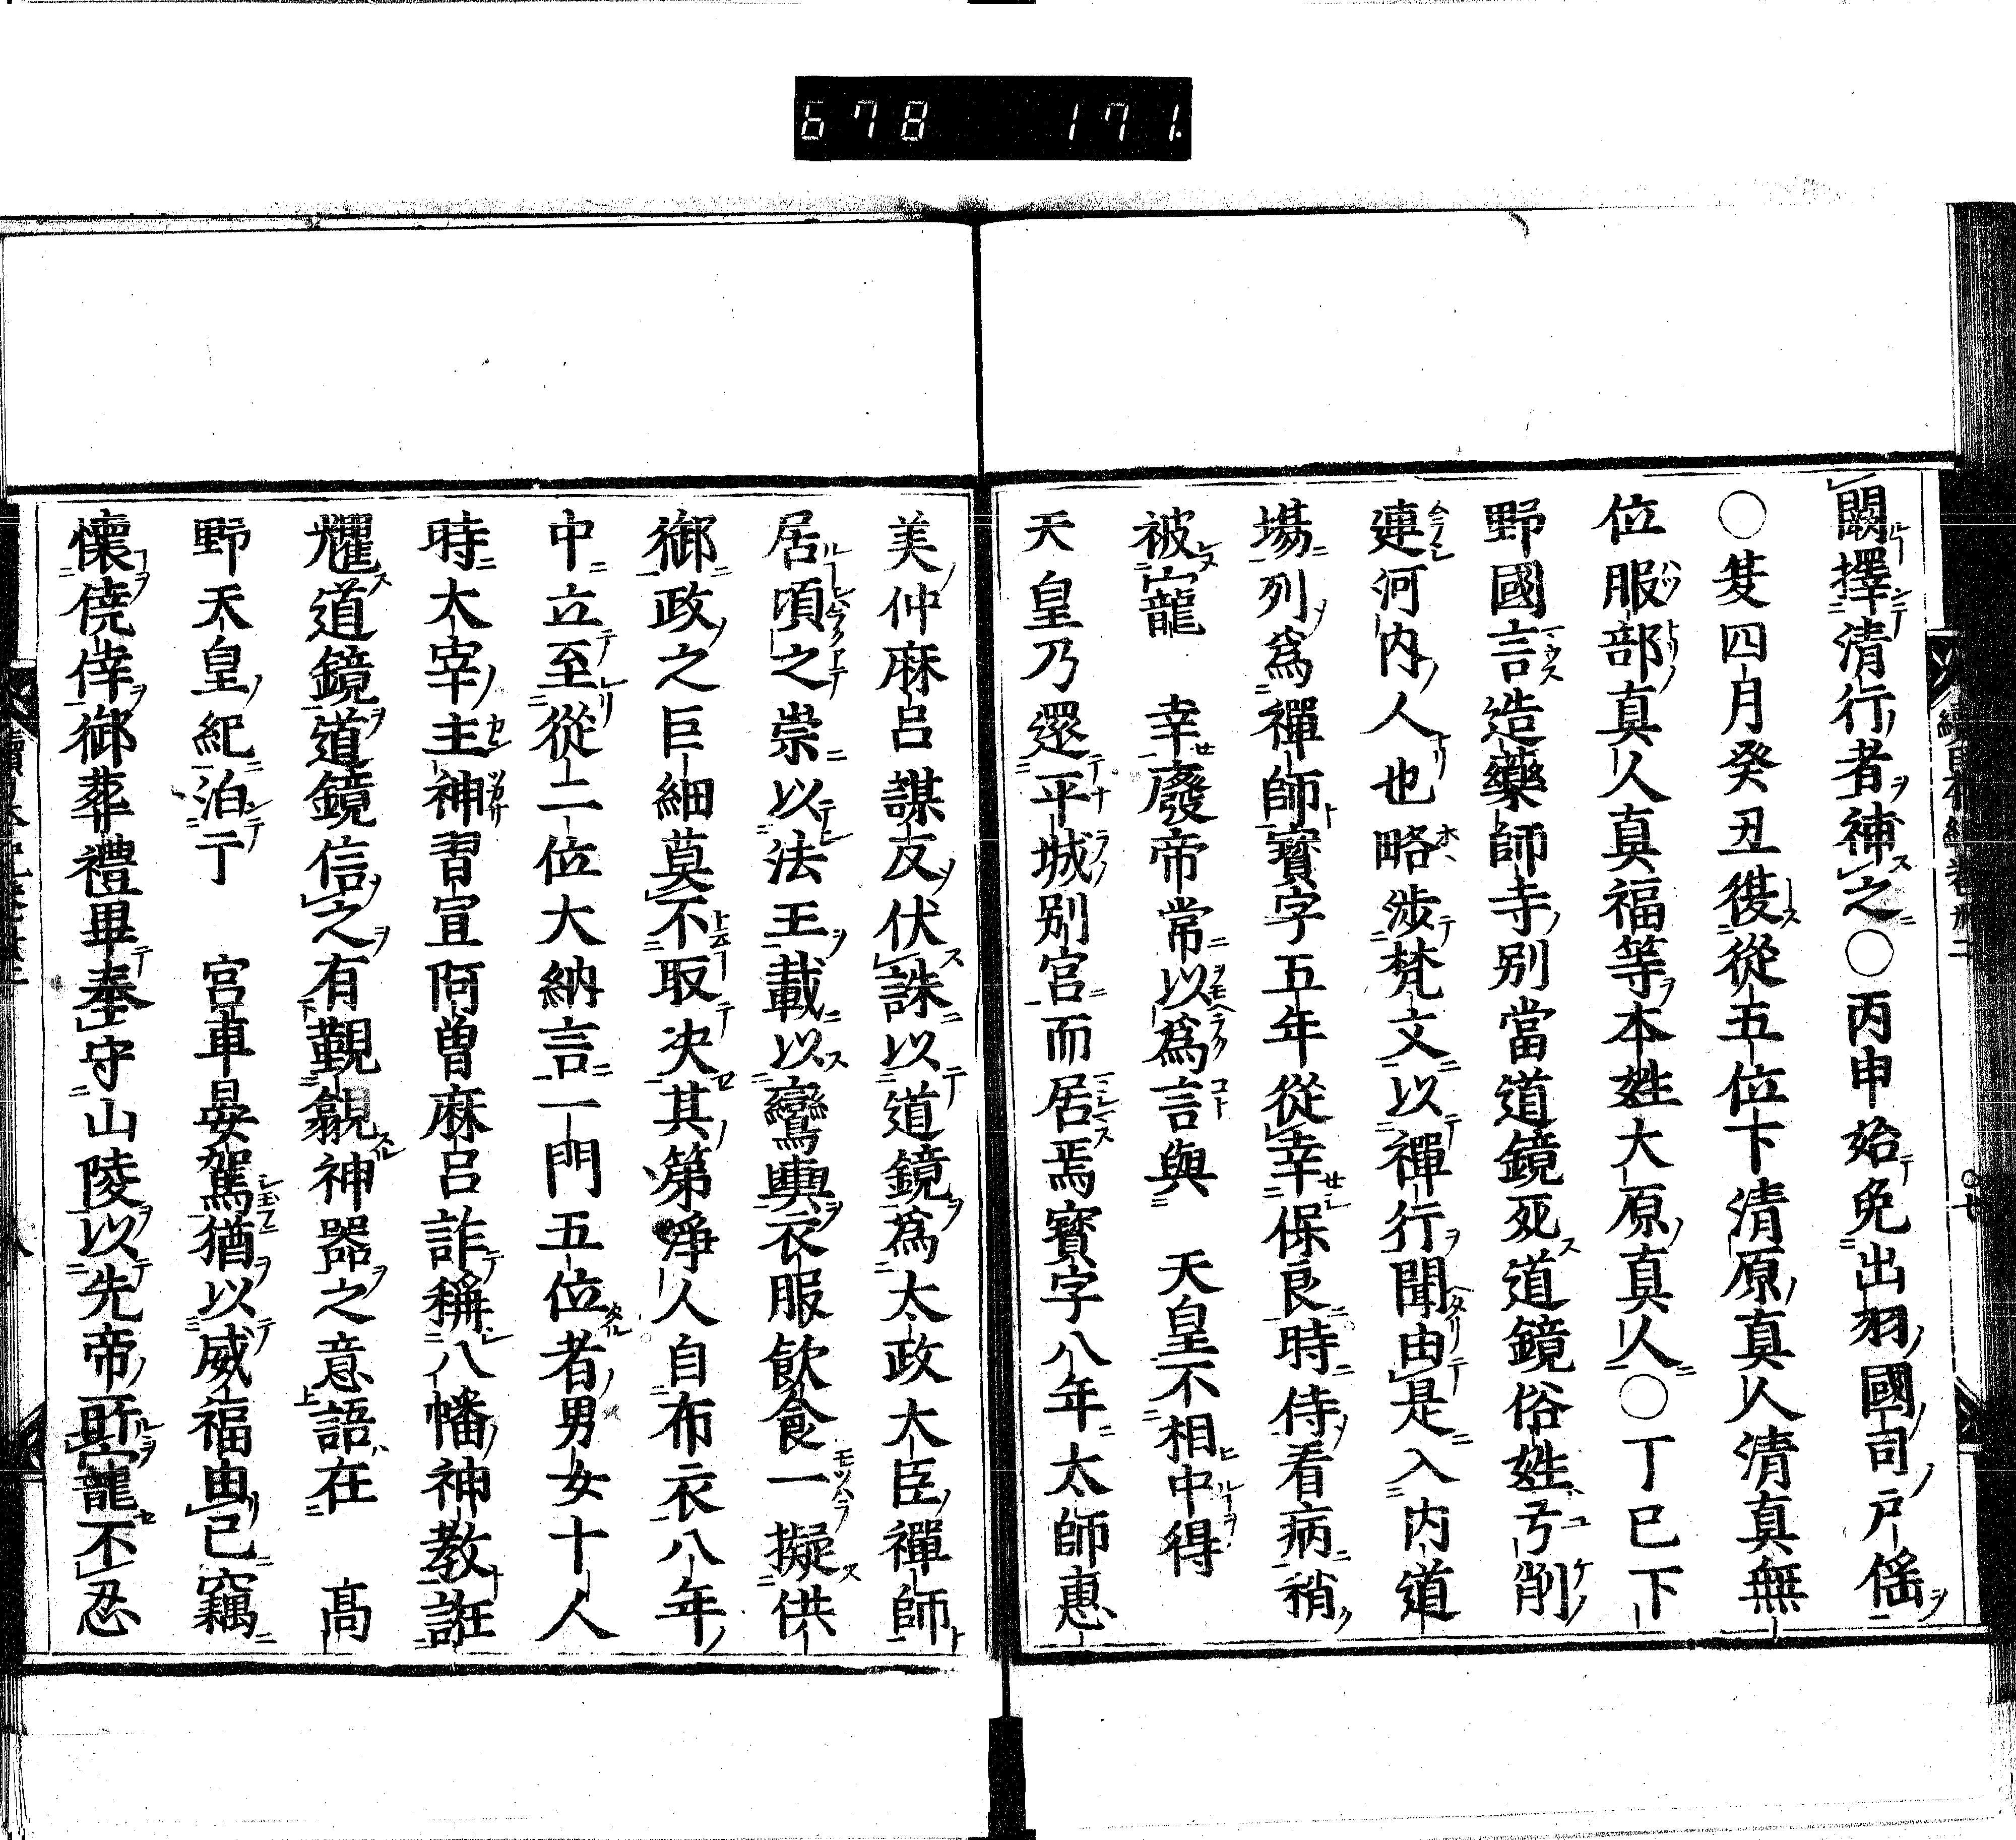 678 171.
闕擇清行者補之○丙申始免出羽國司戸徭
○夏四月癸丑復從五位下清原真人清真無
位服部真人真福等本姓大原真人○丁巳下
野國言造藥師寺別當道鏡死道鏡俗姓弓削
連河内人也略渉梵文以禪行聞由是入内道
場列爲禪師寶字五年從幸保良時侍看病稍
被寵幸廢帝常以爲言與 天皇不相中得
天皇乃還平城別宮而居焉寶字八年太師惠
美仲麻呂謀反伏誅以道鏡爲太政大臣禪師
居頃之崇以法王載以鸞輿衣服飲食一擬供
御政之巨細莫不取决其第淨人自布衣八年
中立至從二位大納言一門五位者男女十人
時大宰主神習宜阿曽麻呂詐稱八幡神教誑
耀道鏡道鏡信之有覬覦神器之意語在 髙
野天皇紀泊于 宮車晏駕猶以威福由已竊
懷僥倖御葬禮畢奉守山陵以先帝所寵不忍